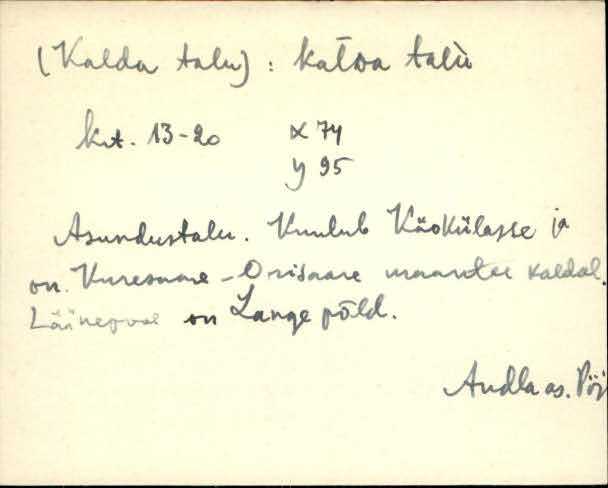 (Kalda talu): kaĺda talù
krt. 13-20 x 74
y 95
Asundustalu. Kuulub Käokülasse ja
on Kuresaare - Orisaare maantee kaldal.
Läänepool on Lange põld.
Audla as. Pöi